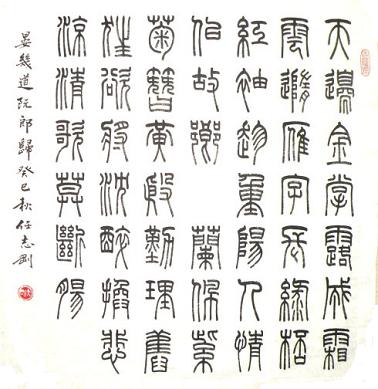 天邊金掌露成霜
雲隨雁字長綠桮
紅袖趁重陽人情
佀故鄉 蘭佩紫
菊簪黃殷勤理舊
狂欲將沈醉換悲
涼清歌莫斷腸
晏幾道阮郎歸癸巳秋任志剛